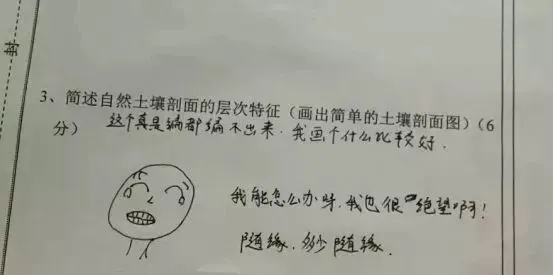 封
3、简述自然土壤剖面的层次特征（画出简单的土壤剖面图）（6
分）
这个真是编都编不出来．我画个什么比较好．
我能怎么办呀．我也很绝望啊！
随缘．
随缘．